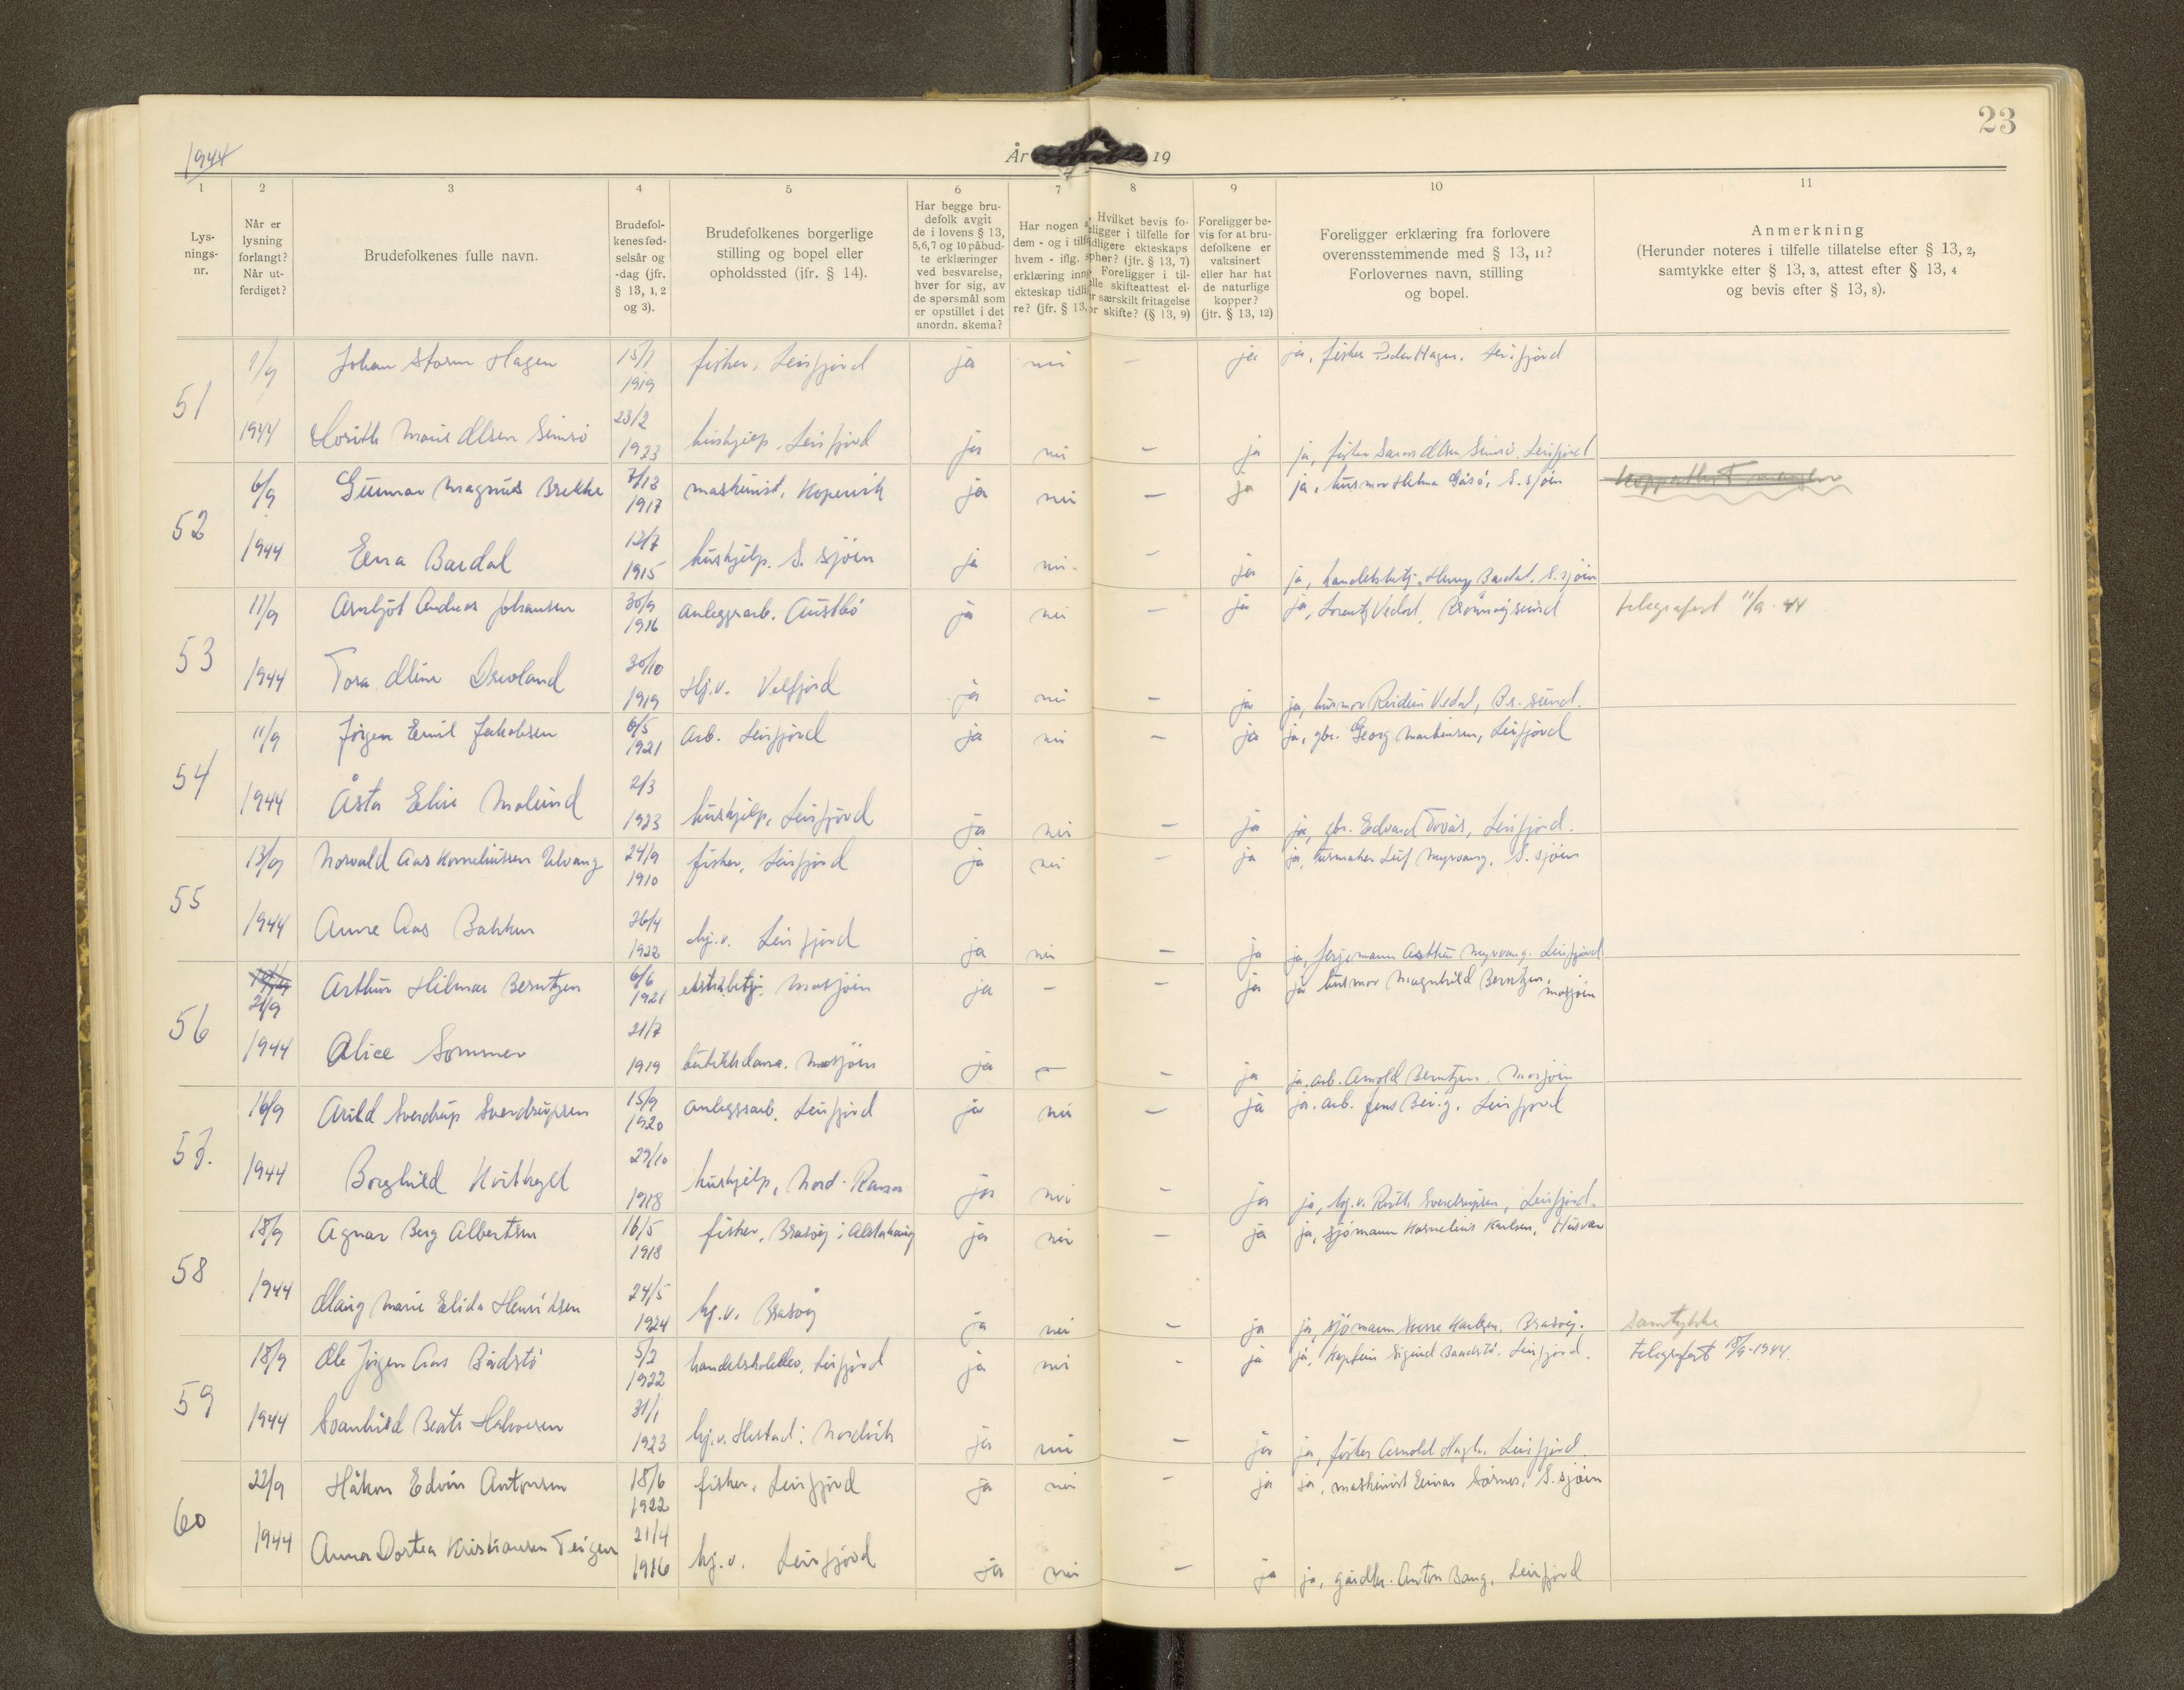 23
1944
År 19
1 2 3 4 5 6 7 8 9 10 11
Lys-
nings-
nr.
Når er
lysning
forlangt?
Når ut-
ferdiget?
Brudefolkenes fulle navn.
Brudefol-
kenes fød-
selsår og
-dag (jfr.
§ 13, 1, 2
og 3).
Brudefolkenes borgerlige
stilling og bopel eller
opholdssted (jfr. § 14).
Har begge bru-
defolk avgit
de i lovens § 13,
5,6,7 og 10 påbud-
te erklæringer
ved besvarelse,
hver for sig, av
de spørsmål som
er opstillet i det
anordn. skema?
Har nogen a
dem - og i tilfe
hvem - iflg.
erklæring inng
ekteskap tidli
re? (jfr. § 13,
Hvilket bevis fo-
eligger i tilfelle for
idligere ekteskaps
phør? (jfr. § 13, 7)
Foreligger i til-
elle skifteattest el-
er særskilt fritagelse
or skifte? (§ 13, 9)
Foreligger be-
vis for at bru-
defolkene er
vaksinert
eller har hat
de naturlige
kopper?
(jfr. § 13, 12)
Foreligger erklæring fra forlovere
overensstemmende med § 13, 11?
Forlovernes navn, stilling
og bopel.
Anmerkning
(Herunder noteres i tilfelle tillatelse efter § 13, 2,
samtykke efter § 13, 3, attest efter § 13, 4
og bevis efter § 13, 8).
51
1/9 Johan Storm Hagen 15/1 1919 fisker, Leirfjord ja nei – ja ja, fisker Peder Hagen. Leirfjord
1944 Marie Olsen Simsø 23/2 1923 hushjelp, Leirfjord ja nei – ja ja, fisker Olsen Simsø. Leirfjord
52
6/9 Gunnar Magnus Brekke 7/12 1917 maskinist, Kopervik ja nei – ja ja, husmor Helma Gåsø, S. sjøen
1944 Erna Bardal 12/7 1915 hushjelp. S. sjøen ja nei – ja ja, handelsbetj. Henry Bardal. S. sjøen
53
11/9 Arnljot Andreas Johansen 30/9 1916 anleggsarb. Austbø ja nei – ja ja, Lorentz Vedal, Brønnøysund telegrafert 11/9-44
1944 Tora Oline Drevland 30/10 1919 Hj.v. Velfjord ja nei – ja ja, husmor Reidun Vedal, Br.sund.
54
11/9 Jørgen Emil Jakobsen 6/5 1921 Arb. Leirfjord ja nei – ja ja, gbr. Georg Martinsen, Leirfjord
1944 Åsta Elise Molund 2/3 1923 hushjelp, Leirfjord ja nei – ja ja, gbr. Edvard Tovås, Leirfjord.
55
13/9 Norvald Aas Korneliussen Ulvang 24/9 1910 fisker, Leirfjord ja nei – ja ja, urmaker Leif Myrvang, S. sjøen
1944 Anne Aas Bakken 26/4 1922 hj.v. Leirfjord ja nei – ja ja, ferjemann Arthur Myrvang. Leirfjord
56
21/9 Arthur Hilmar Berntzen 6/6 1921 ekstrabetj. Mosjøen ja – – ja ja husmor Magnhild Berntzen, Mosjøen
1944 Alice Sommer 21/7 1919 butikkdame. Mosjøen ja – – ja ja. arb. Arnold Berntzen. Mosjøen
57.
16/9 Arild Sverdrup Sverdrupsen 15/9 1920 anleggsarb. Leirfjord ja nei – ja ja. arb. Jens Leirfjord
1944 Borghild 29/10 1918 hushjelp, Nord-Rana ja nei – ja ja, hj.v. Ruth Sverdrupsen, Leirfjord.
58
18/9 Agnar Berg Albertsen 16/5 1918 fisker, Brasøy i Alstahaug ja nei – ja ja, sjømann Kornelius Karlsen, Husvær
1944 Olaug Marie Elida Henriksen 24/5 1924 hj.v. Brasøy ja nei – ja ja, sjømann Sverre Karlsen. Brasøy. Samtykke
59
18/9 Ole Jørgen Aas Bådstø 5/2 1922 Leirfjord ja nei – ja ja, Kaptein Sigurd Leirfjord. telegrafert 18/9-1944.
1944 Svanhild Beate Halvorsen 31/1 1923 hj.v. Hestad i Nordvik ja nei – ja ja, fisker Arnold Leirfjord.
60
22/9 Håkon Edvin Antonsen 18/6 1922 fisker, Leirfjord ja nei – ja ja, maskinist Einar Sørnes, S. sjøen
1944 Anna Dortea Kristiansen Teigen 21/4 1916 hj.v. Leirfjord ja nei – ja ja, gårdbr. Anton Bang, Leirfjord